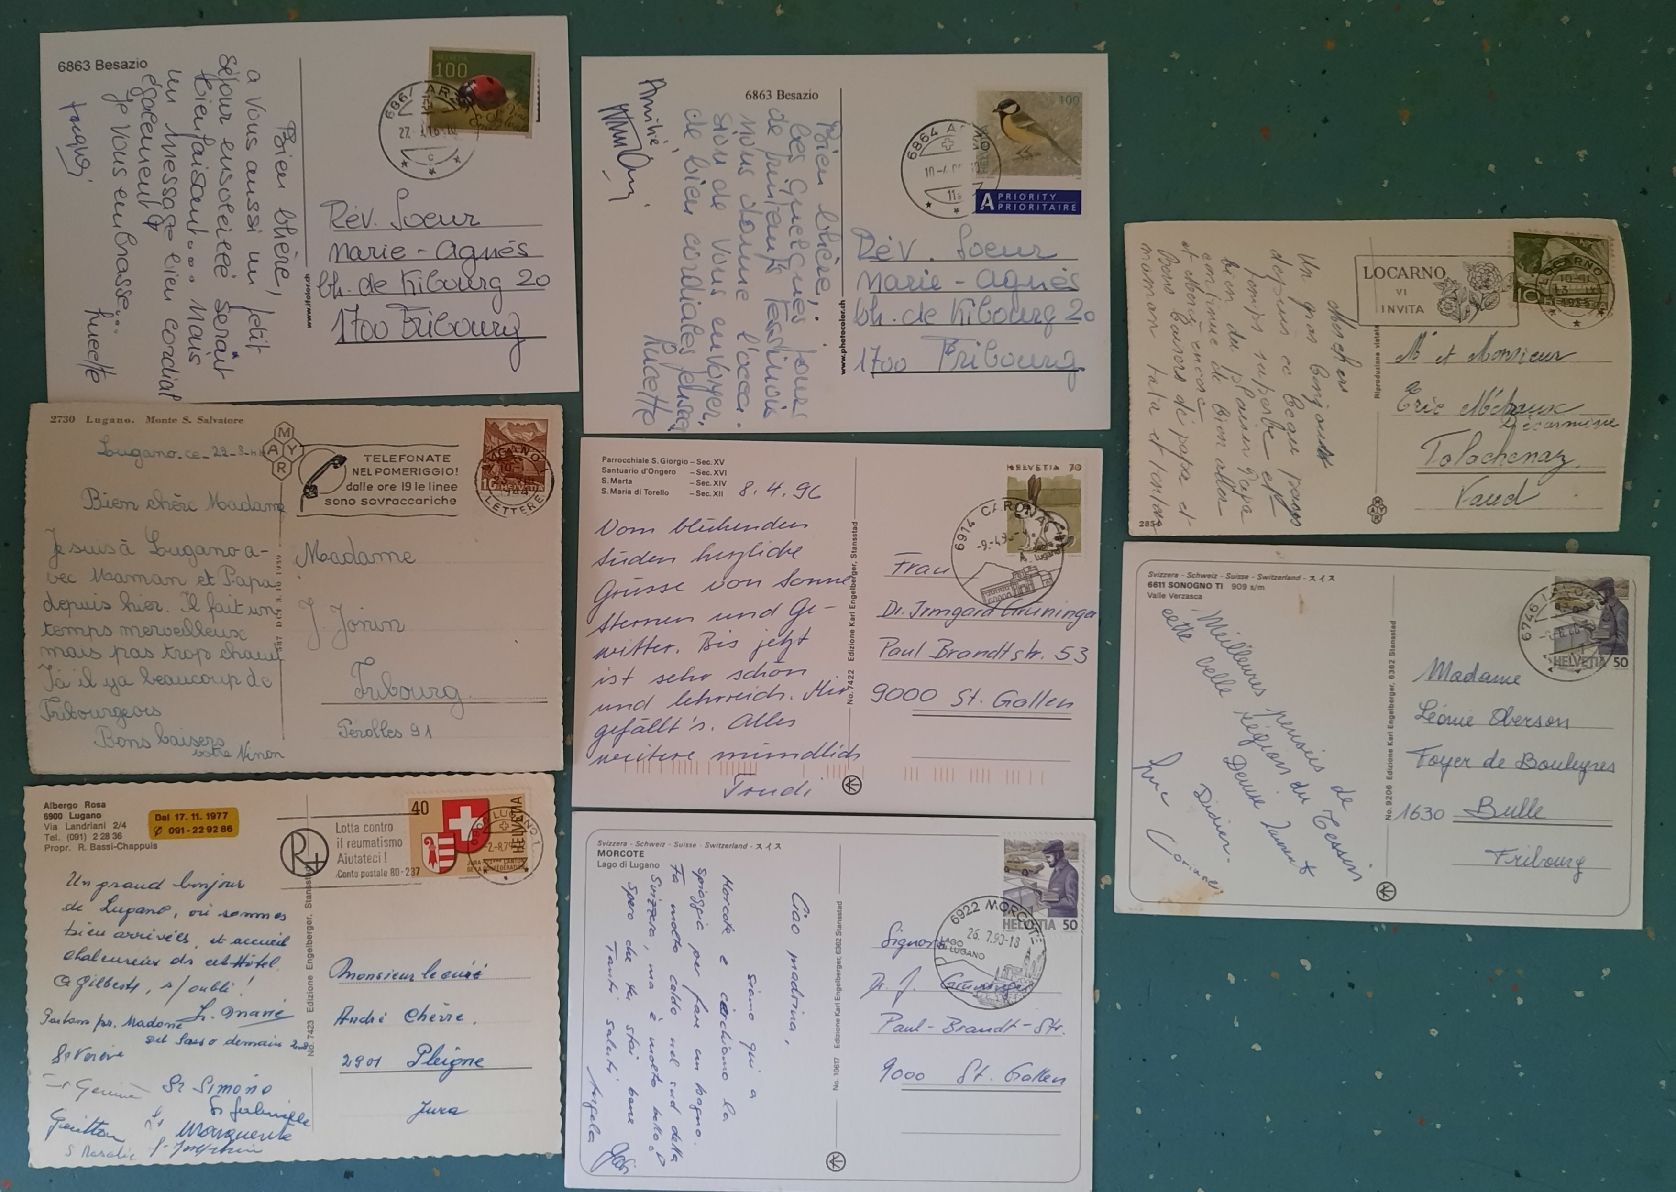 6863 Besazio
HELVETIA
100
Bien chère,
à vous aussi un petit
séjour ensoleillé serait
bienfaisant... Mais
un message bien cordial
également &
je vous embrasse...
Lucette
Rév. Soeur
Marie-Agnès
ch. de Kibourg 20
1700 Fribourg
6863 Besazio
100
6864 A
A PRIORITY
PRIORITAIRE
Bien chère,
ces quelques jours
de printemps tessinois
nous donne l'occa-
sion de vous envoyer,
de bien cordiales pensées
Lucette
Amitié
Rév. Soeur
Marie-Agnès
ch. de Kibourg 20
1700 Fribourg
www.photocolor.ch
LOCARNO
VI
INVITA
LOCARNO
10
Un gros bonjour
depuis ce beau pays
temps superbe et
bien du plaisir Papa
continue de bien aller
et Moi encore
Bons baisers de papa et
maman
Riproduzione vietata
Mr et Monsieur
Eric
Tolochenaz
Vaud
2730 Lugano. Monte S. Salvatore
MAYR
TELEFONATE
NEL POMERIGGIO!
dalle ore 19 le linee
sono sovraccariche
LETTERE
Lugano-ce-
Bien chère Madame
Je suis à Lugano a-
vec Maman et Papa
depuis hier. Il fait un
temps merveilleux
mais pas trop chaud
Ici il y a beaucoup de
Fribourgeois
Bons baisers
votre Ninon
Madame
J. Jorin
Fribourg
Pérolles 91
Parrocchiale S. Giorgio – Sec. XV
Santuario d'Ongero – Sec. XVI
S. Marta – Sec. XIV
S. Maria di Torello – Sec. XII
8.4.96
HELVETIA 70
6914 CARONA
Vom blühenden
Süden herzliche
Grüsse von Sonne
Sternen und Ge-
witter. Bis jetzt
ist sehr schön
und lehrreich. Mir
gefällt's. Alles
weitere mündlich
Trudi
No. 7422 Edizione Karl Engelberger, Stansstad
Frau
Dr. Irmgard Grüninger
Paul Brandtstr. 53
9000 St. Gallen
Svizzera - Schweiz - Suisse - Switzerland - スイス
6611 SONOGNO TI 909 s/m
Valle Verzasca
HELVETIA 50
Meilleures pensées de
cette belle région du Tessin
Denise
Didier
No. 9206 Edizione Karl Engelberger, 6362 Stansstad
Madame
Léonie Oberson
Foyer de Bouleyres
1630 Bulle
Fribourg
Albergo Rosa
6900 Lugano
Via Landriani 2/4
Tel. (091) 2 28 36
Propr. R. Bassi-Chappuis
Dal 17. 11. 1977
✆ 091-22 92 86
Lotta contro
il reumatismo
Aiutateci!
Conto postale 80-237
40
HELVETIA
Un grand bonjour
de Lugano, où sommes
bien arrivées, et accueil
chaleureux ds cet Hôtel.
Ca Gilberte, s/oubli!
Partons pr. Madone
del Sasso demain
Sr Simone
Sr Marguerite
No. 7423 Edizione Engelberger, Stansstad
Monsieur le curé
André Chèvre.
2901 Pleigne
Jura
Svizzera - Schweiz - Suisse - Switzerland - スイス
MORCOTE
Lago di Lugano
HELVETIA 50
6922 MORCOTE
26.7.90-18
LAGO
DI LUGANO
Ciao madrina,
siamo qui a
Morcote e cerchiamo la
spiaggia per fare un bagno.
Fa molto caldo nel sud della
Svizzera, ma è molto bello.
Spero che tu stai bene
Tanti saluti Angela
No. 10617 Edizione Karl Engelberger, 6362 Stansstad
Signora
Paul-Brandt-Str.
9000 St. Gallen